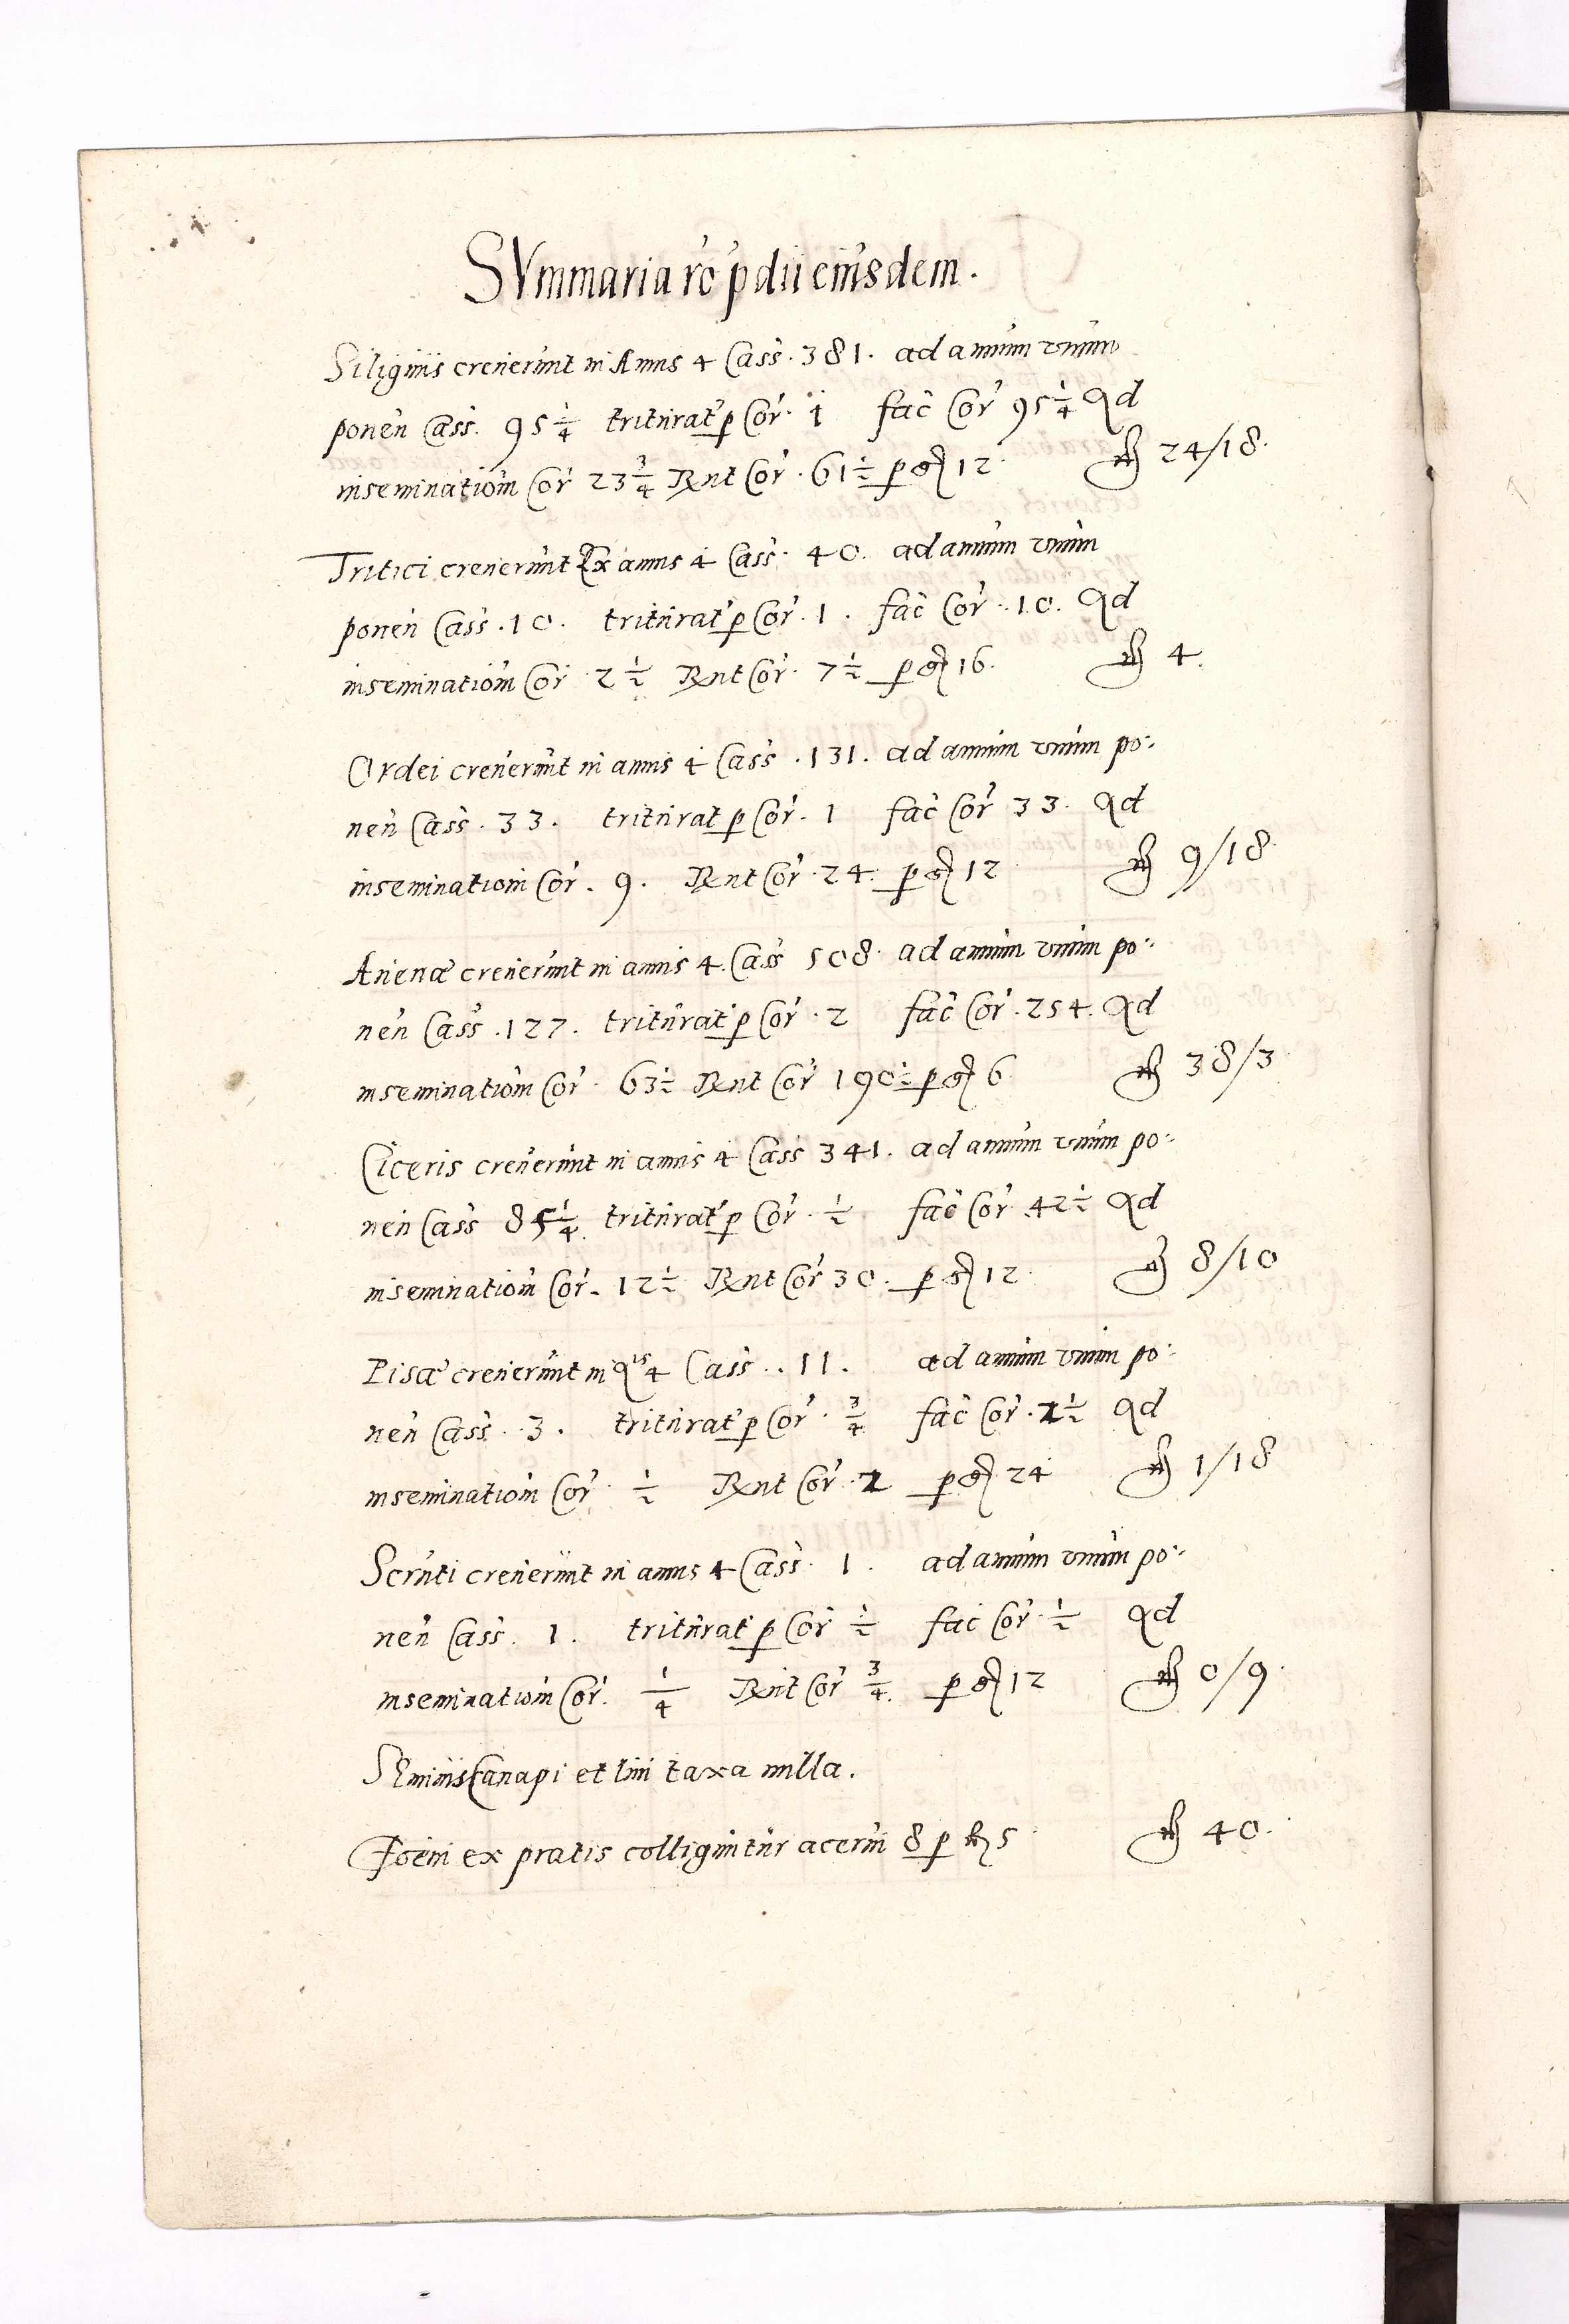 SVmmaria rõ pdii eiusdem.
Siliginis creuerunt in Annis 4 Cass. 381. ad annum vnum
ponen Cass. 95 1/4 triturat p Cor. 1 fac Cor 95 1/4 Qd
inseminatiom Cor 23 3/4 Rnt Cor. 61 1/2 p g 12. fl 24/18.
Tritici creuerunt Ex annis 4 Cass. 40. ad annum vnum
ponen Cass. 10. triturat p Cor. 1. fac Cor. 10. Qd
inseminatiom Cor 2 1/2 Rnt Cor. 7 1/2 p g 16. fl 4.
Ordei creuerunt in annis 4 Cass. 131. ad annum vnum po:
nen Cass. 33. triturat p Cor. 1 fac Cor 33. Qd
inseminatiom Cor. 9. Rnt Cor. 24. p g 12 fl 9/18.
Auenæ creuerunt in annis 4. Cass 508. ad annum vnum po:
nen Cass. 127. triturat p Cor. 2 fac Cor. 254. Qd
inseminatiom Cor. 63 1/2 Rnt Cor 190 1/2 p g 6 fl 38/3
Ciceris creuerunt in annis 4 Cass 341. ad annum vnum po:
nen Cass 85 1/4. triturat p Cor. 1/2 fac Cor 42 1/2 Qd
inseminatiom Cor. 12 1/2 Rnt Cor 30. p g 12. fl 8/10
Pisæ creuerunt in Qis 4 Cass. . 11. ad annum vnum po:
nen Cass. . 3. triturat p Cor. 3/4 fac Cor. 2 1/2 Qd
inseminatiom Cor. 1/2 Rnt Cor. 2 p g 24 fl 1/18
Scruti creuerunt in annis 4 Cass. 1. ad annum vnum po:
nen Cass. 1. triturat p Cor 1/2 fac Cor. 1/2 Qd
inseminatiom Cor. 1/4 Rnt Cor 3/4. p g 12 fl 0/9.
SEminis Canapi et lini taxa nulla.
Foeni ex pratis colliguntur acerui 8 p fl 5 fl 40.